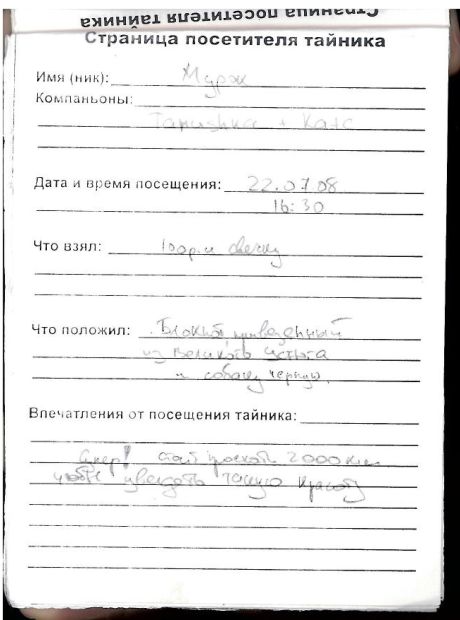 Страница посетителя тайника
Страница посетителя тайника
Имя (ник): Мурж
Компаньоны:
Tanushka + Катс
Дата и время посещения: 22.07.08
16:30
Что взял: 100р. и свечку
Что положил: Блокнот, привезенный
из Великого Устюга
и собаку черную.
Впечатления от посещения тайника:
Супер! стоит проехать 2000 км
чтобы увидеть такую красоту